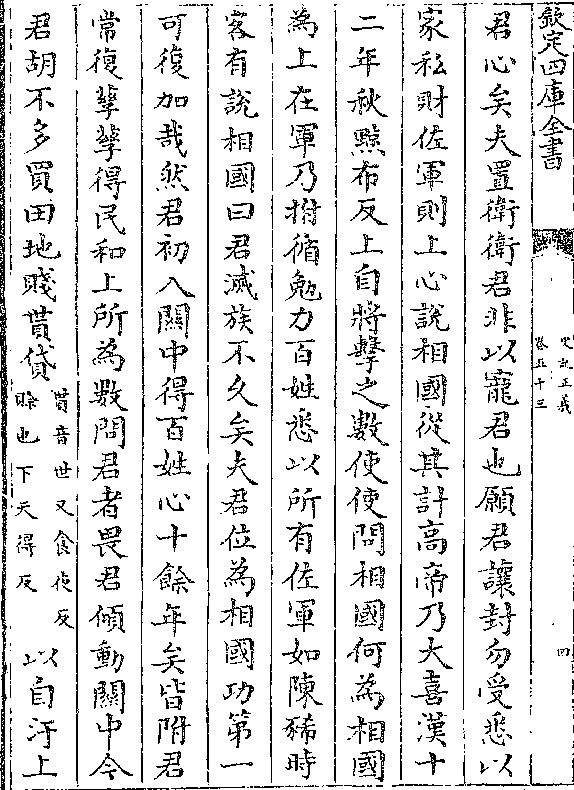 欽定四庫全書
史記正義
卷五十三
四
君心矣夫置衛衛君非以寵君也願君讓封勿受悉以
家私財佐軍則上心說相國從其計高帝乃大喜漢十
二年秋黥布反上自將擊之數使使問相國何為相國
為上在軍乃拊循勉力百姓悉以所有佐軍如陳豨時
客有說相國曰君滅族不久矣夫君位為相國功第一
可復加哉然君初入關中得百姓心十餘年矣皆附君
常復孳孳得民和上所為數問君者畏君傾動關中今
君胡不多買田地賤貰貸
貰音世又食夜反
賖也下天得反
以自汙上